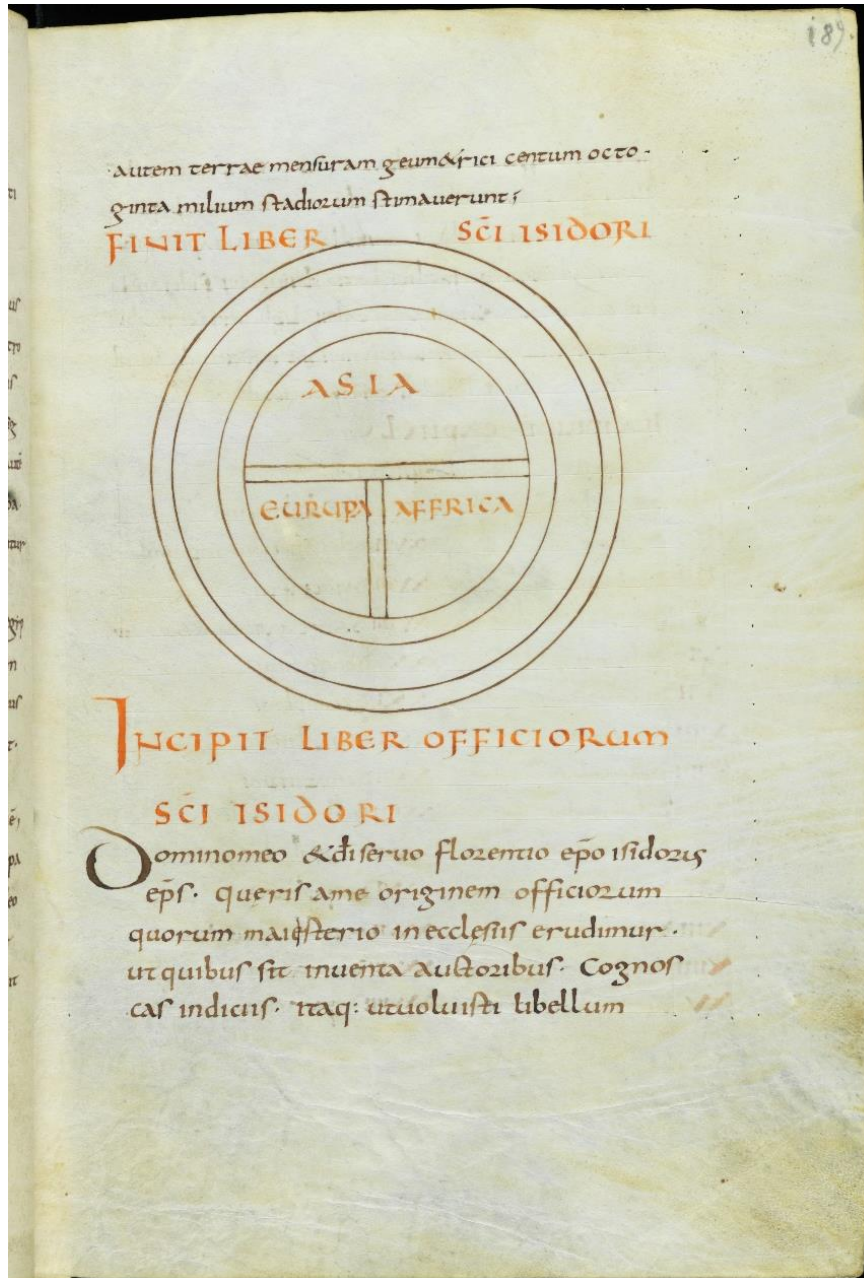 189.
autem terrae mensuram geumetrici centum octo-
ginta milium stadiorum stimauerunt;
FINIT LIBER SC̄I ISIDORI
ASIA
EURUPA AFFRICA
INCIPIT LIBER OFFICIORUM
SC̄I ISIDORI
Dominomeo &d̄i seruo florentio ep̄o isidorus
ep̄s. queris ame originem officiorum
quorum maigsterio inecclesiis erudimur.
ut quibus sit inuenta auctoribus. Cognos
cas indiciis. itaq: utuoluisti libellum